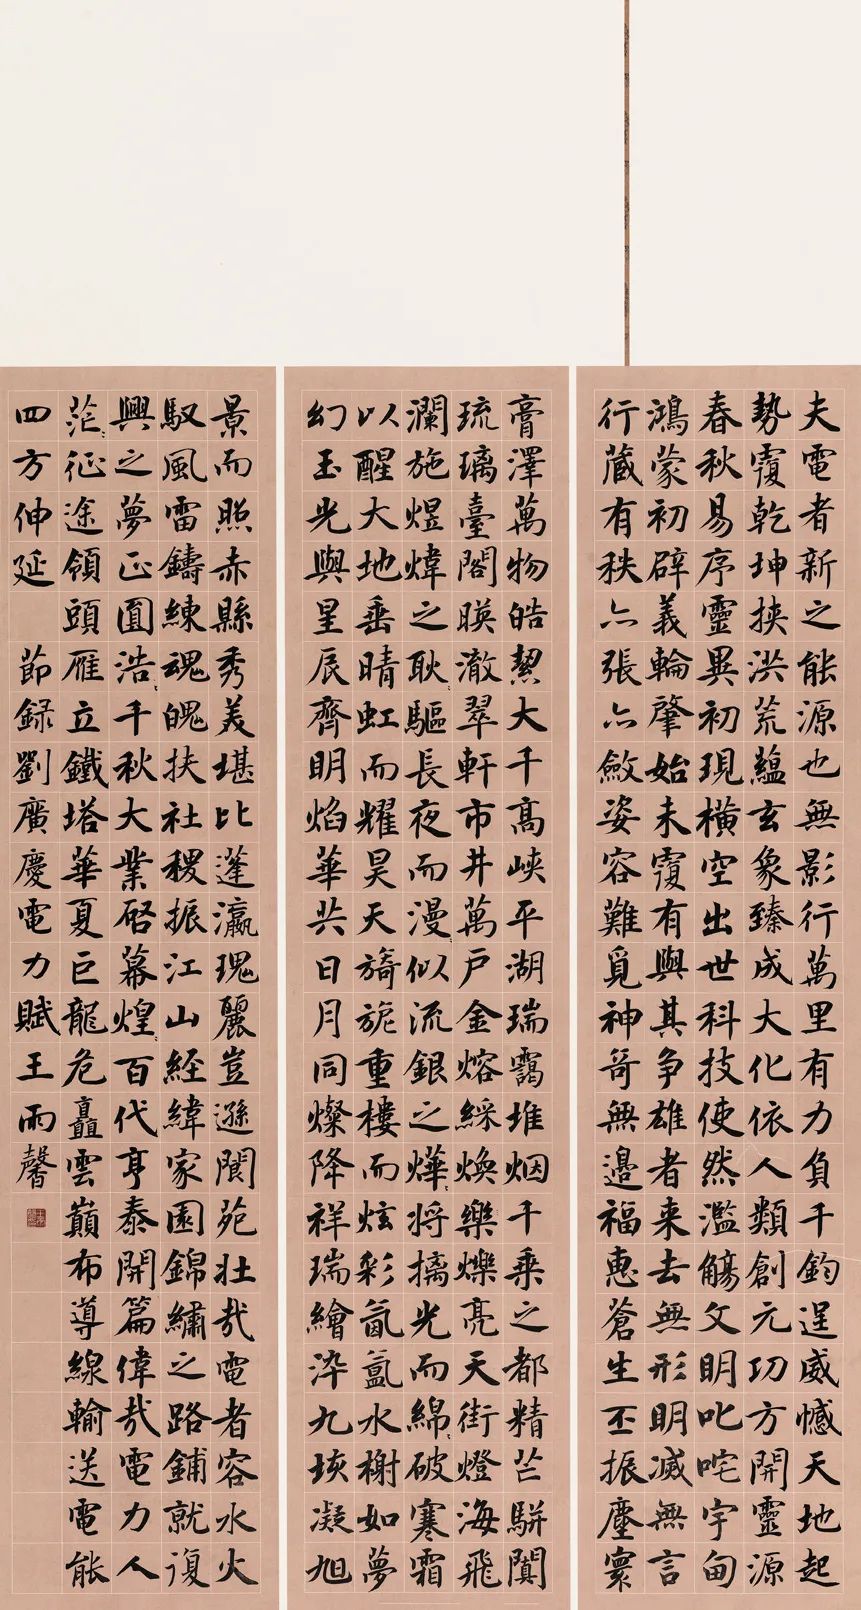 夫電者新之能源也無影行萬里有力負千鈞逞威憾天地起
勢覆乾坤挾洪荒蘊玄象臻成大化依人類創元功方開靈源
春秋易序靈異初現橫空出世科技使然濫觴文明叱咤宇甸
鴻蒙初辟義輪肇始未覆有與其争雄者来去無形明滅無言
行蔵有秩亦張亦斂姿容難覓神奇無邊福惠蒼生丕振塵寰
膏澤萬物皓絜大千高峡平湖瑞靄堆烟千乗之都精芒駢闐
琉璃臺閣暎澈翠軒市井萬戶金熔綵煥樂爍亮天街燈海飛
瀾施煜煒之耿〻驅長夜而漫〻似流銀之燁〻將摛光而綿〻破寒霜
以醒大地垂晴虹而耀昊天旖旎重樓而炫彩氤氳水榭如夢
幻玉光與星辰齊明焰華共日月同燦降祥瑞繪染九垓凝旭
景而照赤縣秀美堪比蓬瀛瑰麗豈遜閬苑壯哉電者容水火
馭風雷鑄練魂魄扶社稷振江山経緯家園錦繡之路鋪就復
興之夢正圓浩〻千秋大業啓幕煌〻百代亨泰開篇偉哉電力人
茫〻征途領頭雁立鐵塔華夏巨龍危矗雲巔布導線輸送電能
四方伸延 節録劉廣慶電力賦王雨馨